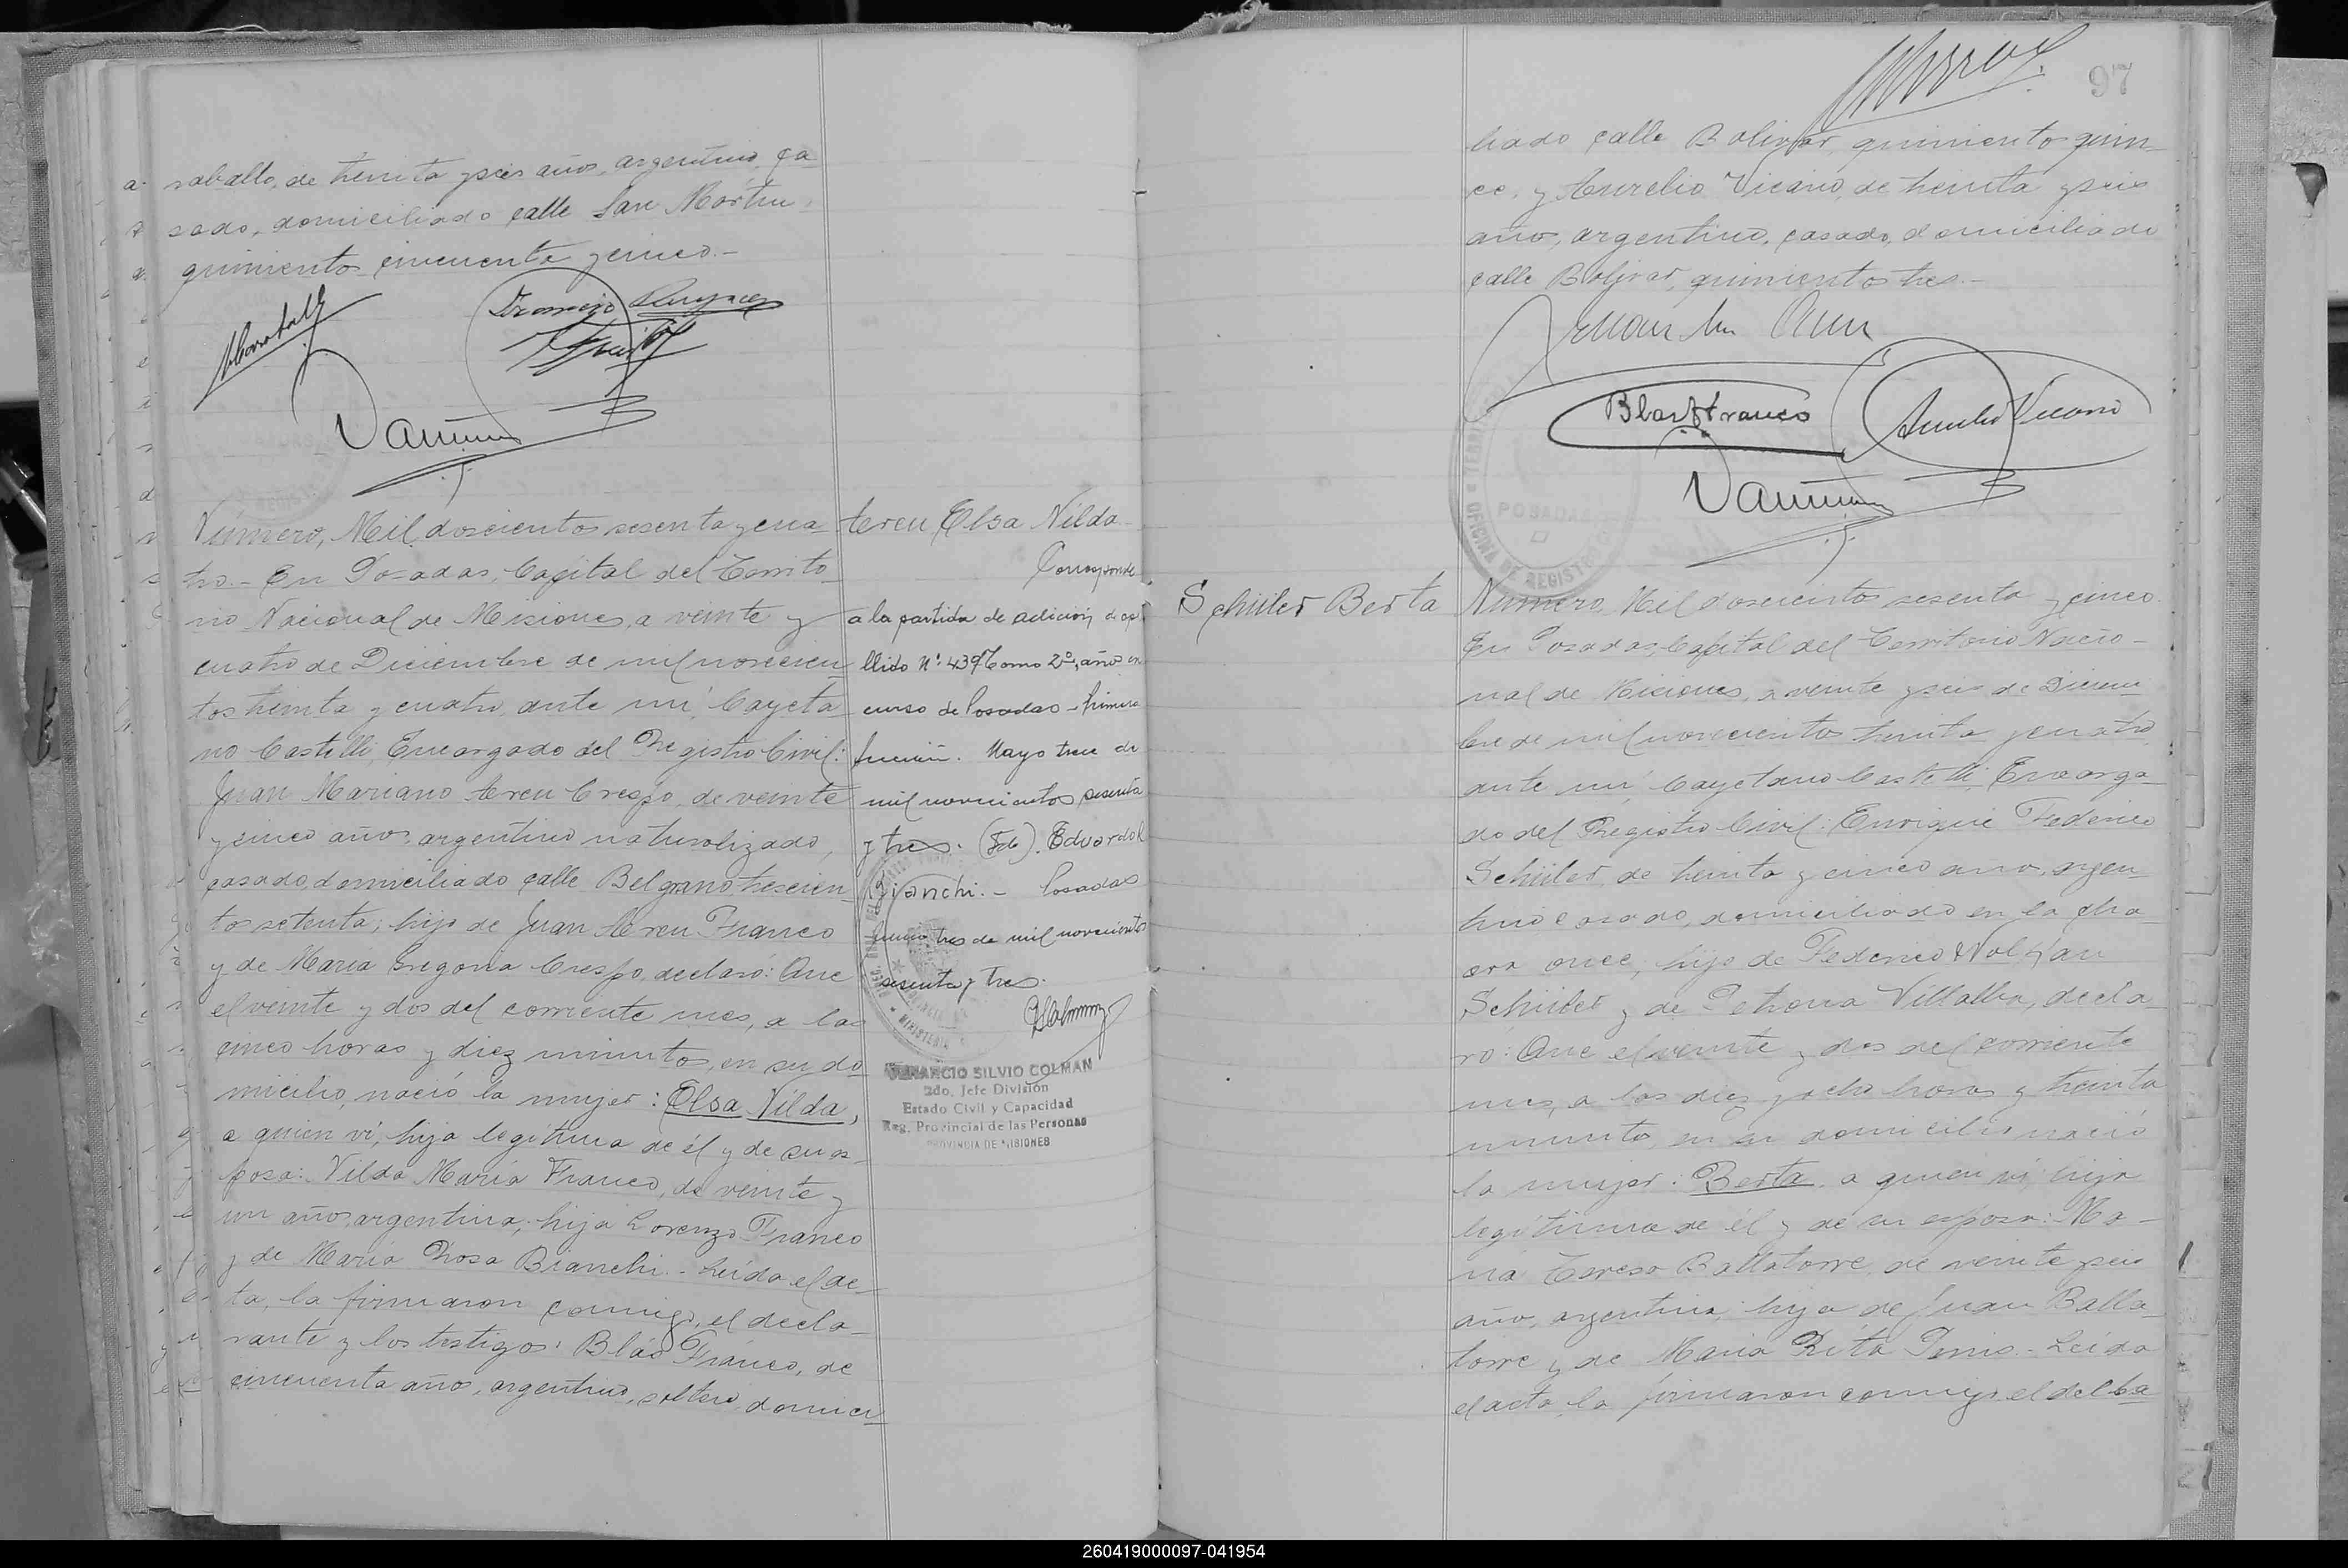 raballo, de treinta y seis años, argentino, ca-
sado, domiciliado calle San Martín
quinientos cincuenta y cinco.-
Número, Mil doscientos sesenta y cua-
tro.- En Posadas, Capital del Territo-
rio Nacional de Misiones, a veinte y
cuatro de Diciembre de mil novecien-
tos treinta y cuatro, ante mí, Cayeta-
no Castelli, Encargado del Registro Civil:
Juan Mariano Abreu Crespo, de veinte
y cinco años, argentino naturalizado,
casado, domiciliado calle Belgrano trescien-
tos setenta; hijo de Juan Abreu Franco
y de María Gregoria Crespo, declaró: Que
el veinte y dos del corriente mes, a las
cinco horas y diez minutos, en su do-
micilio, nació la mujer: Elsa Nilda,
a quien ví, hija legítima de él y de su es-
posa: Nilda María Franco, de veinte y
un años, argentina; hija Lorenzo Franco
y de María Rosa Bianchi.- Leída el ac-
ta, la firmaron conmigo, el decla-
rante y los testigos: Blás Franco, de
cincuenta años, argentino, soltero, domici-
Elsa Nilda
Corresponde
a la partida de adición de ape-
llido Nº: 439 Tomo 2º, año en
curso de Posadas - Primera
Sección. Mayo trece de
mil novecientos sesenta
y tres. (Fdo). Eduardo
Bianchi.- Posadas
junio tres de mil novecientos
sesenta y tres.
VENANCIO SILVIO COLMAN
2do. Jefe División
Estado Civil y Capacidad
Reg. Provincial de las Personas
PROVINCIA DE MISIONES
97
liado calle Bolívar, quiniento quin-
ce, y Aurelio Vicario, de treinta y seis
años, argentino, casado, domiciliado
calle Bolívar, quinientos tres.-
Blas Franco
Aurelio Vicario
POSADAS
OFICINA DE REGISTRO
Schüler Berta
Número, Mil doscientos sesenta y cinco
En Posadas, Capital del Territorio Nacio-
nal de Misiones, a veinte y seis de Diciem-
bre de mil novecientos treinta y cuatro,
ante mí, Cayetano Castelli, Encarga-
do del Registro Civil: Enrique Federico
Schüler, de treinta y cinco años, argen-
tino casado, domiciliado en la cha-
cra once, hijo de Federico Wolfgan
Schüler y de Petrona Villalba, decla-
ró: Que el veinte y dos del corriente
mes, a las diez y ocho horas y treinta
minutos, en su domicilio nació
la mujer: Berta, a quien ví, hija
legítima de él y de su esposa: Ma-
ría Teresa Ballatorre, de veinte y seis
años, argentina; hija de Juan Balla-
torre y de María Rita Pinis.- Leída
el acta, la firmaron conmigo el
260419000097-041954